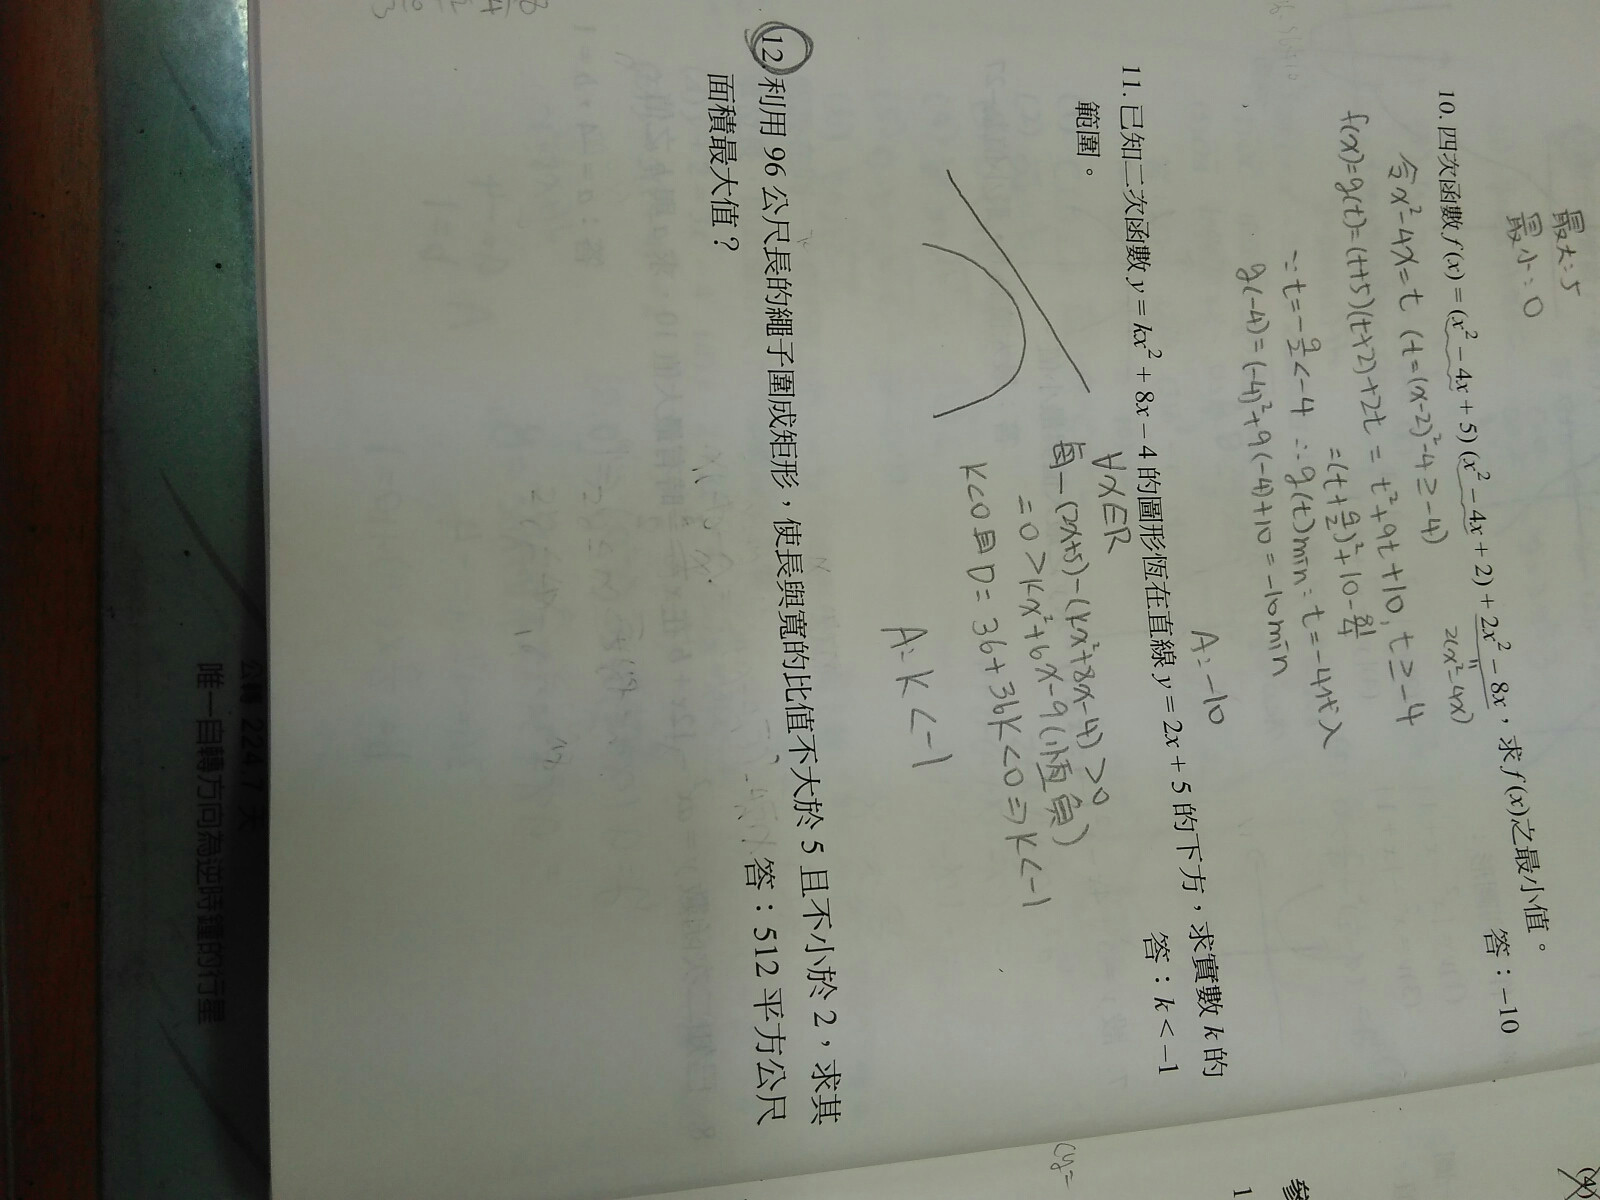 最大:5
最小:0
10.四次函數f(x)=(x²-4x+5)(x²-4x+2)+2x²-8x，求f(x)之最小值。
答：-10
2(x²-4x)
令x²-4x=t (t=(x-2)²-4≥-4)
f(x)=g(t)=(t+5)(t+2)+2t=t²+9t+10, t≥-4
=(t+9/2)²+10-81/4
∵t=-9/2<-4 ∴g(t)min:t=-4代入
g(-4)=(-4)²+9(-4)+10=-10min
A:-10
11.已知二次函數y=kx²+8x-4的圖形恆在直線y=2x+5的下方，求實數k的
範圍。
答：k<-1
∀x∈R
每一(2x+5)-(kx²+8x-4)>0
=0>kx²+6x-9(恆負)
k<0且D=36+36k<0⇒k<-1
A:k<-1
12.利用96公尺長的繩子圍成矩形，使長與寬的比值不大於5且不小於2，求其
面積最大值？
答：512平方公尺
公轉 224.7 天
唯一自轉方向為逆時鐘的行星
(4)
參
1